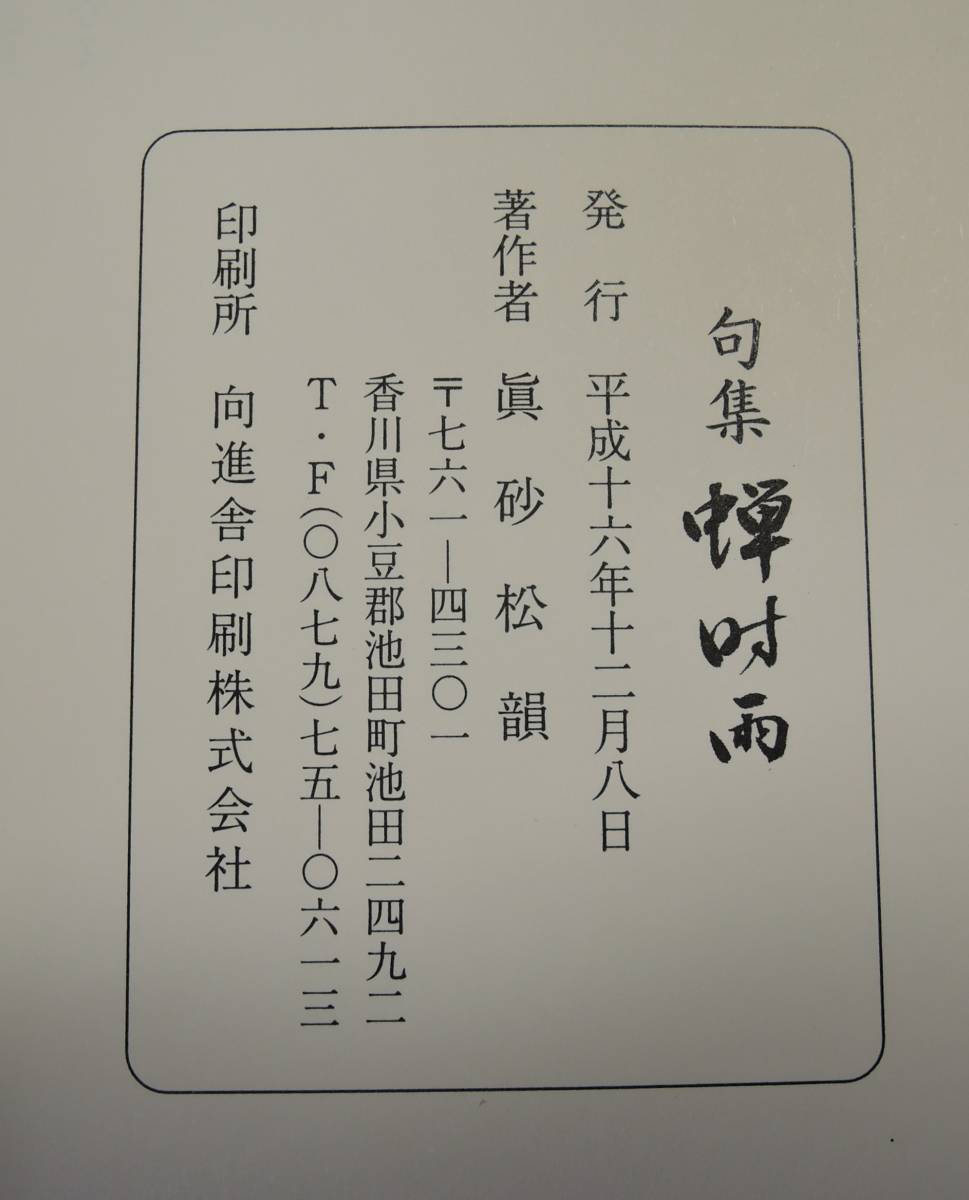 句集 蝉時雨
発行 平成十六年十二月八日
著作者 眞砂松韻
〒七六一―四三〇一
香川県小豆郡池田町池田二四九二
T・F(〇八七九)七五―〇六一三
印刷所 向進舎印刷株式会社